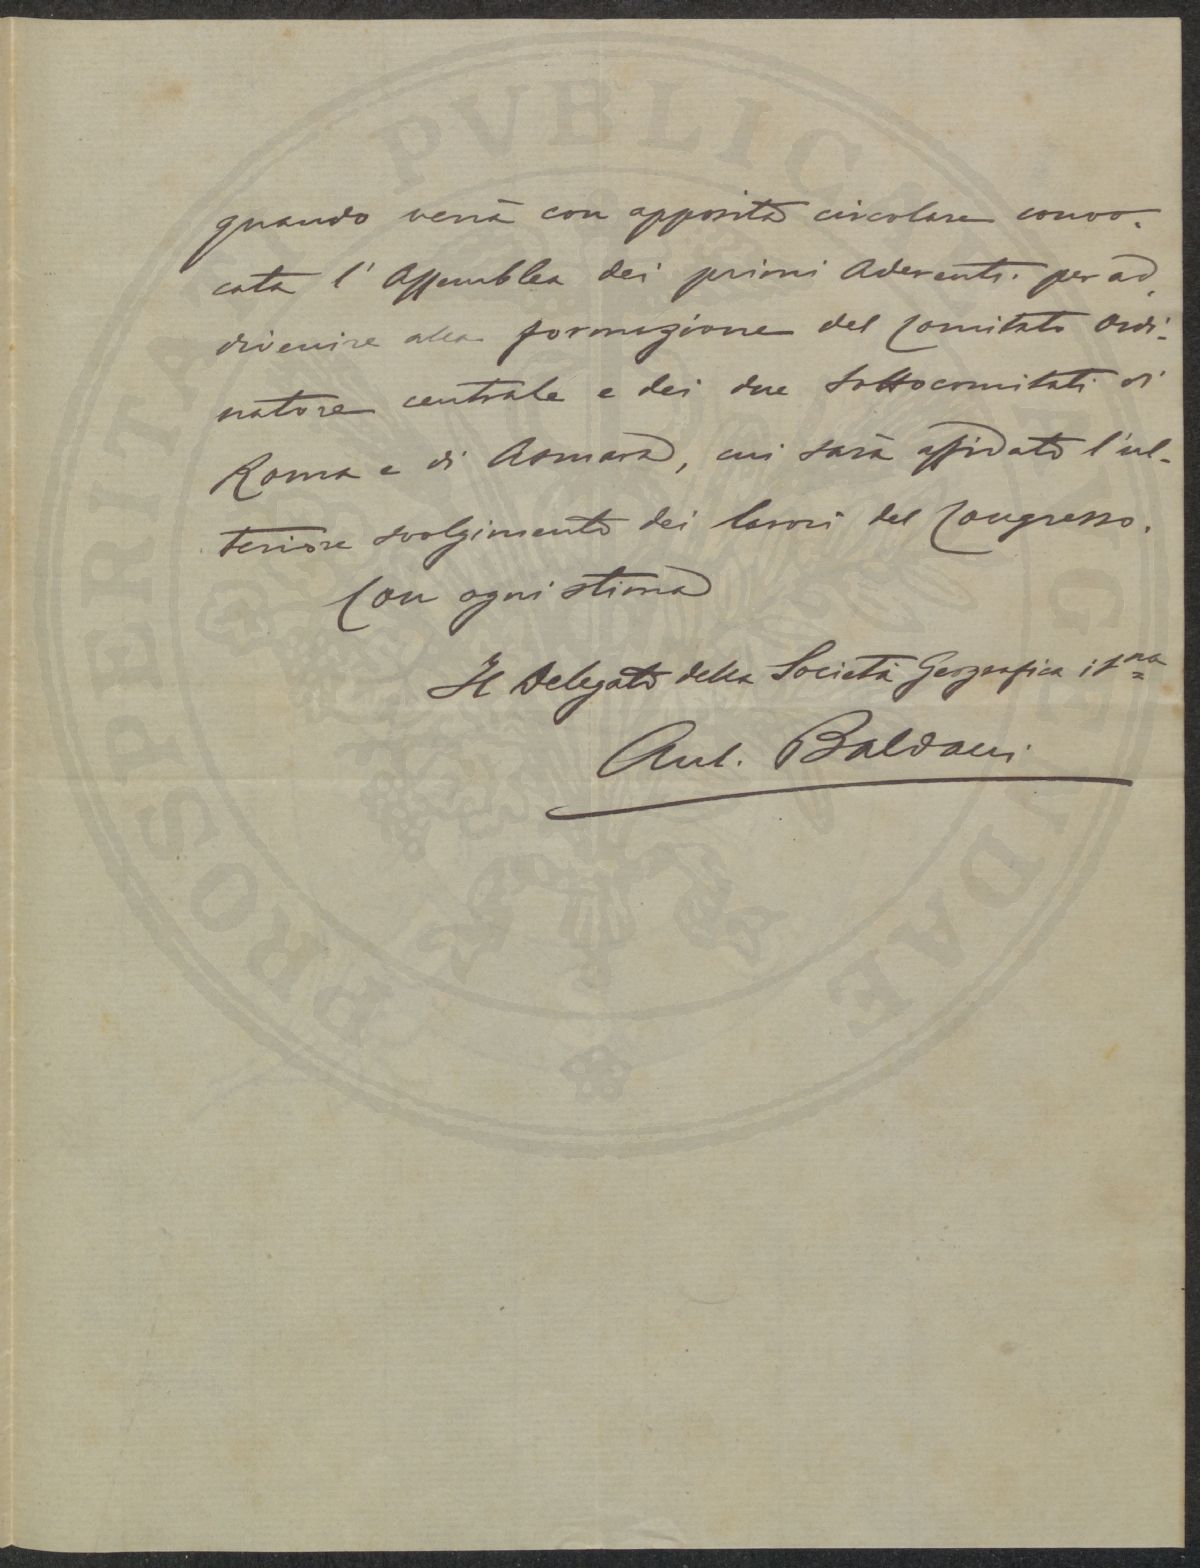 quando verrà con apposita circolare convo-
cata l'Assemblea dei primi Aderenti per ad-
divenire alla formazione del Comitato Ordi-
natore centrale e dei due Sottocomitati di
Roma e di Asmara, cui sarà affidato l'ul-
teriore svolgimento dei lavori del Congresso.
Con ogni stima
Il Delegato della Società Geografica it.na
Ant. Baldacci
PROSPERITATI PVBLICAE AVGENDAE